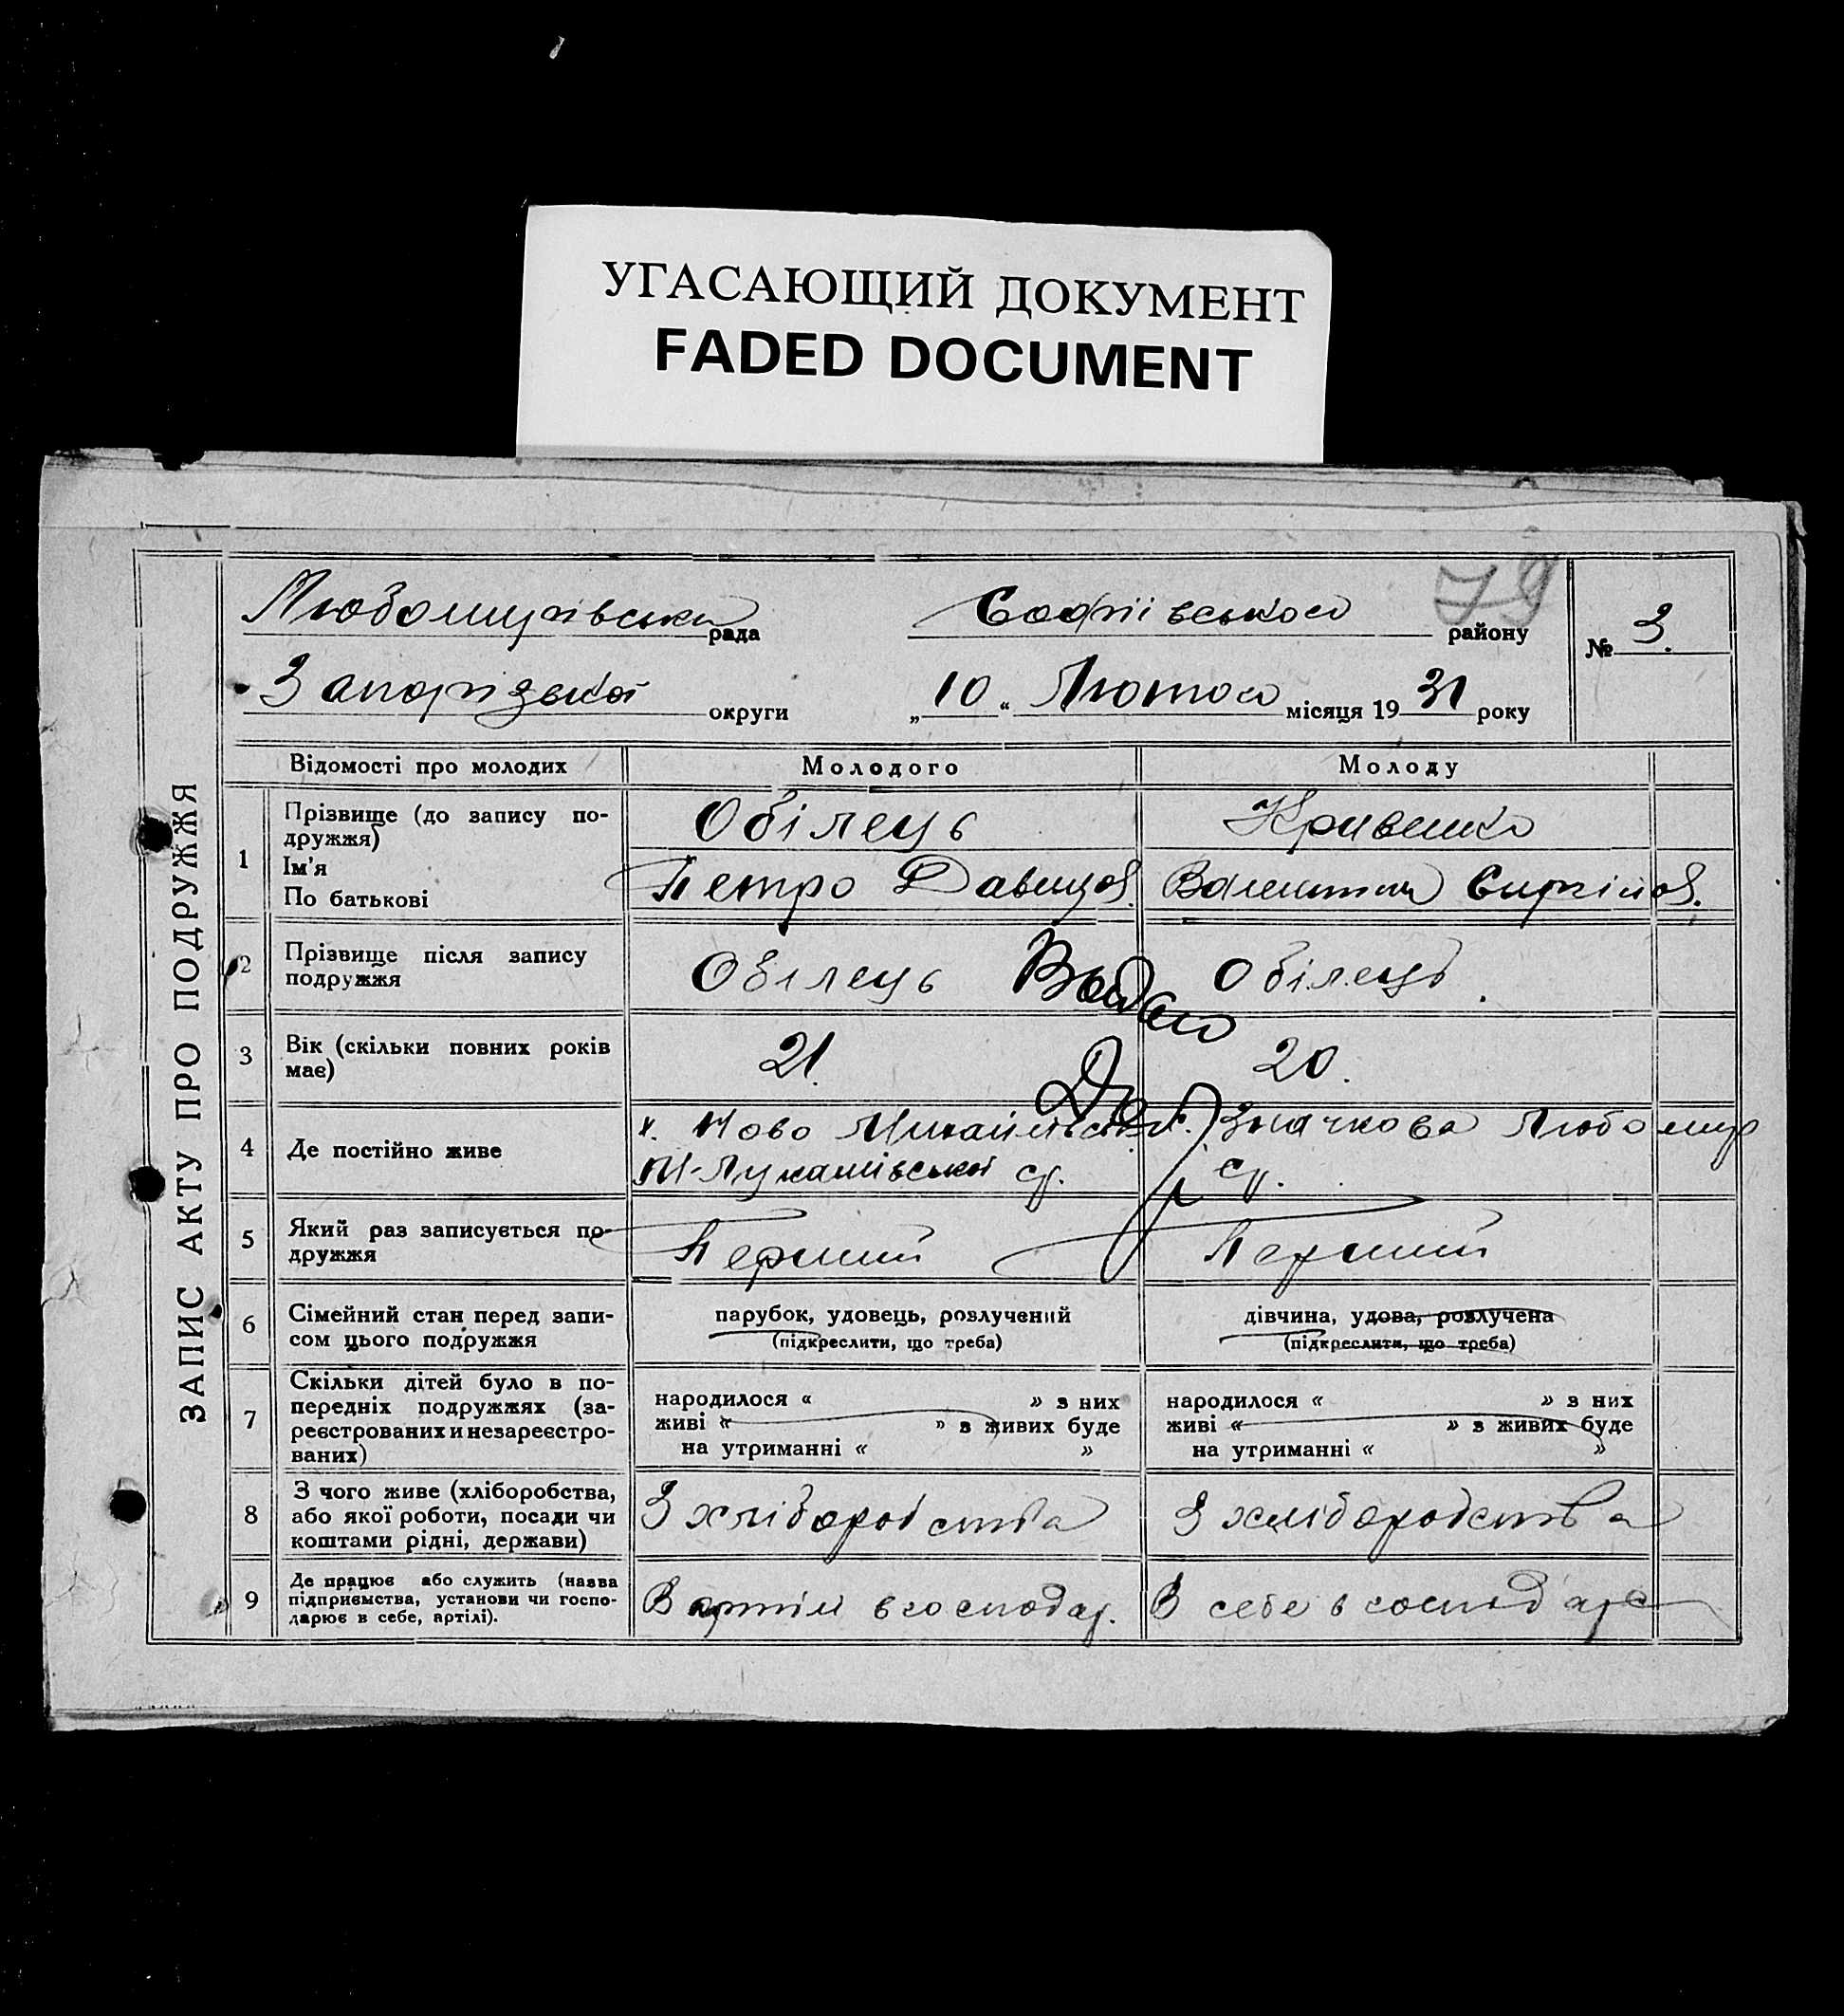 УГАСАЮЩИЙ ДОКУМЕНТ
FADED DOCUMENT
79
Любомирівська рада Софіївського району № 3.
Запорізької округи „10“ Лютого місяця 1931 року
ЗАПИС АКТУ ПРО ПОДРУЖЖЯ
Відомості про молодих Молодого Молоду
1 Прізвище (до запису по-
дружжя)
Ім'я
По батькові
Обілець
Петро Давидов.
Кривенко
Валентина Сергіїов.
2 Прізвище після запису
подружжя
Обілець
Обілець.
Видано
3 Вік (скільки повних років
має)
21.
20.
4 Де постійно живе
х. Ново Михайлівськ.
М-Лукашівської ср.
Значкова Любомир
ср.
5 Який раз записується по-
дружжя
Перший
Перший
6 Сімейний стан перед запи-
сом цього подружжя
парубок, удовець, розлучений
(підкреслити, що треба)
дівчина, удова, розлучена
(підкреслити, що треба)
7 Скільки дітей було в по-
передніх подружжях (за-
реєстрованих и незареєстро-
ваних)
народилося « » з них
живі « » з живих буде
на утриманні « »
народилося « » з них
живі « » з живих буде
на утриманні « »
8 З чого живе (хліборобства,
або якої роботи, посади чи
коштами рідні, держави)
З хліборобства
З хліборобства
9 Де працює або служить (назва
підприємства, установи чи госпо-
дарює в себе, артілі).
В артілі в господар.
В себе в господарс